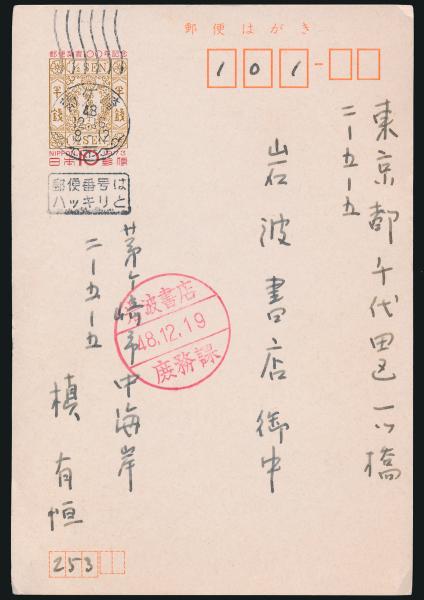 郵便はがき
郵便葉書100年記念
½SEN
半銭
半銭
日本10郵便
48
郵便番号は
ハッキリと
101
東京都千代田区一ツ橋
二ー五ー五
岩波書店御中
岩波書店
48.12.19
庶務課
茅ヶ崎市中海岸
二ー五ー五
槙有恒
253